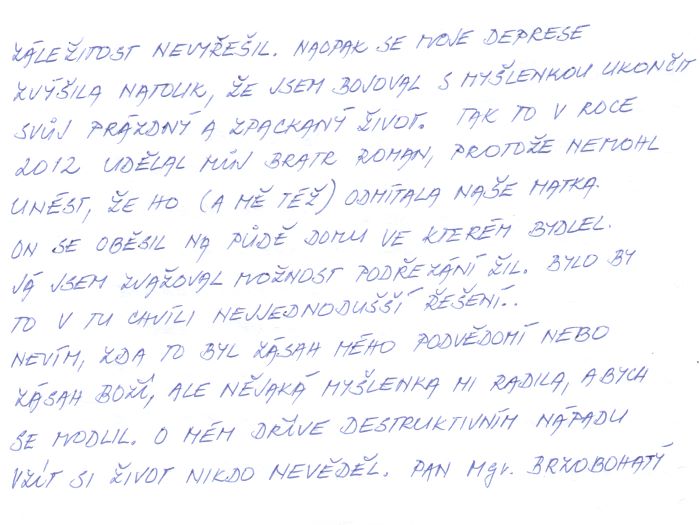 ZÁLEŽITOST NEVYŘEŠIL. NAOPAK SE MOJE DEPRESE
ZVÝŠILA NATOLIK, ŽE JSEM BOJOVAL S MYŠLENKOU UKONČIT
SVŮJ PRÁZDNÝ A ZPACKANÝ ŽIVOT. TAK TO V ROCE
2012 UDĚLAL MŮJ BRATR ROMAN, PROTOŽE NEMOHL
UNÉST, ŽE HO (A MĚ TÉŽ) ODMÍTALA NAŠE MATKA.
ON SE OBĚSIL NA PŮDĚ DOMU VE KTERÉM BYDLEL.
JÁ JSEM ZVAŽOVAL MOŽNOST PODŘEZÁNÍ ŽIL. BYLO BY
TO V TU CHVÍLI NEJJEDNODUŠŠÍ ŘEŠENÍ..
NEVÍM, ZDA TO BYL ZÁSAH MÉHO PODVĚDOMÍ NEBO
ZÁSAH BOŽÍ, ALE NĚJAKÁ MYŠLENKA MI RADILA, ABYCH
SE MODLIL. O MÉM DŘÍVE DESTRUKTIVNÍM NÁPADU
VZÍT SI ŽIVOT NIKDO NEVĚDĚL. PAN Mgr. BRZOBOHATÝ